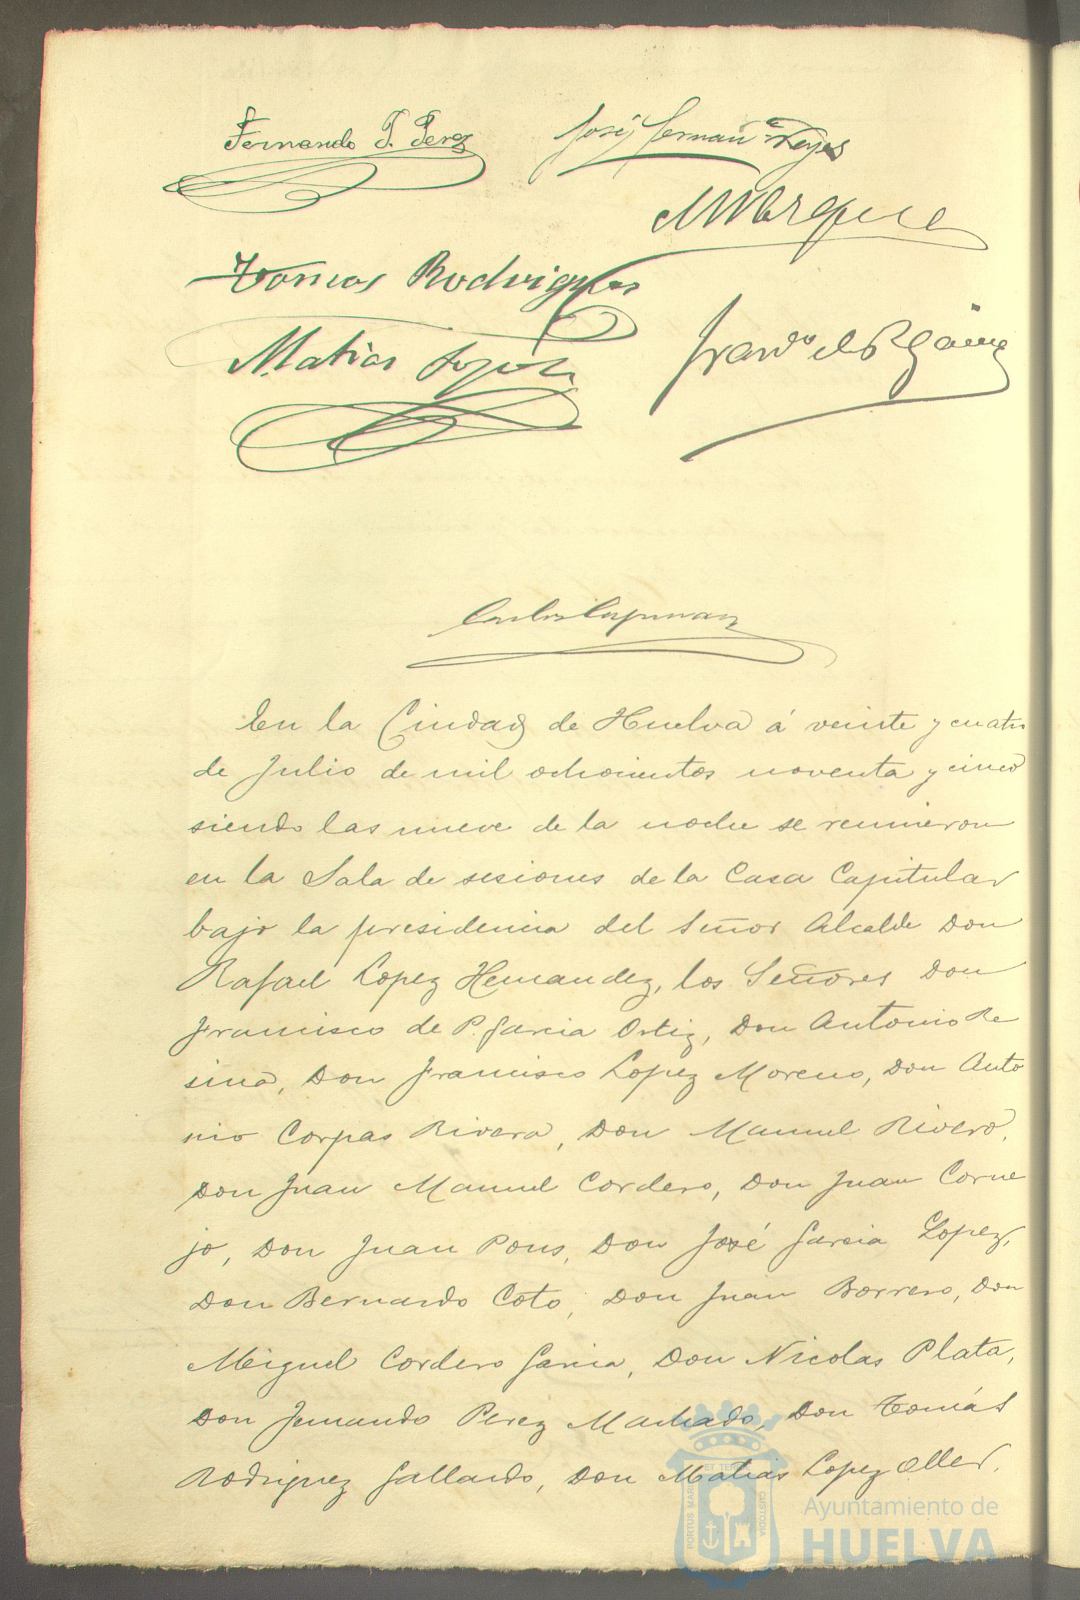 Fernando P. Perez
José Hernan^z Reyes
Marquez
Tomas Rodriguez
Matias Lopez
Fran^co de P. García
En la Ciudad de Huelva á veinte y cuatro
de Julio de mil ochocientos noventa y cinco
siendo las nueve de la noche se reunieron
en la Sala de sesiones de la Casa Capitular
bajo la presidencia del Señor Alcalde Don
Rafael Lopez Hernandez, los Señores Don
Francisco de P. Garcia Ortiz, Don Antonio Re
sina, Don Francisco Lopez Moreno, Don Anto
nio Corpas Rivera, Don Manuel Rivero,
Don Juan Manuel Cordero, Don Juan Corne
jo, Don Juan Pons, Don José Garcia Lopez,
Don Bernardo Coto, Don Juan Borrero, Don
Miguel Cordero Garcia, Don Nicolas Plata,
Don Fernando Perez Machado, Don Tomás
Rodriguez Gallardo, Don Matias Lopez Oller,
PORTUS MARIS ET TERRE CUSTODIA
Ayuntamiento de
HUELVA